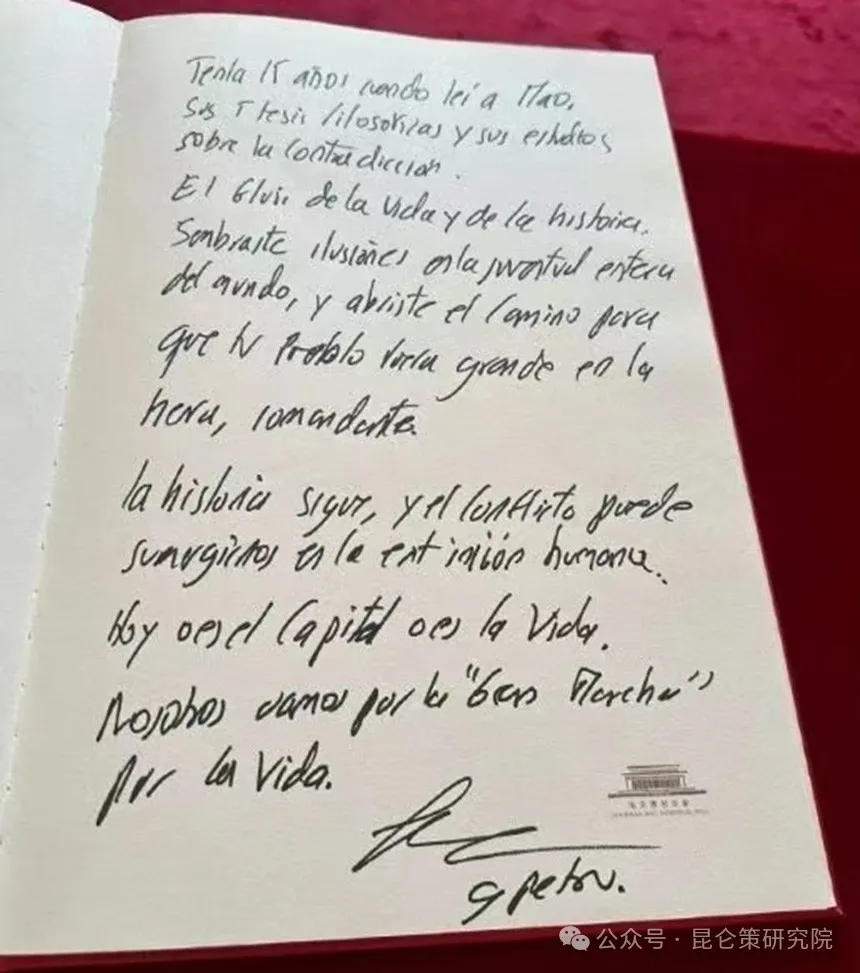 Tenía 15 años cuando leí a Mao.
Sus Tesis filosoficas y sus estudios
sobre la contradiccion.
El fluir de la vida y de la historia.
Sembraste ilusiones en la juventud entera
del mundo, y abriste el camino para
que tu Pueblo fuera grande en la
hera, comandante.
la historia sigue, y el conflicto puede
sumergirnos en la extinción humana.
Hoy o es el Capital o es la Vida.
Nosotros vamos por la "Gran Marcha"
por la Vida.
G Petro.
毛主席纪念堂
CHAIRMAN MAO MEMORIAL HALL
公众号·昆仑策研究院